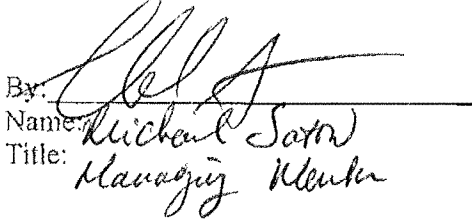 By:
Name: Michael Saxon
Title: Managing Member